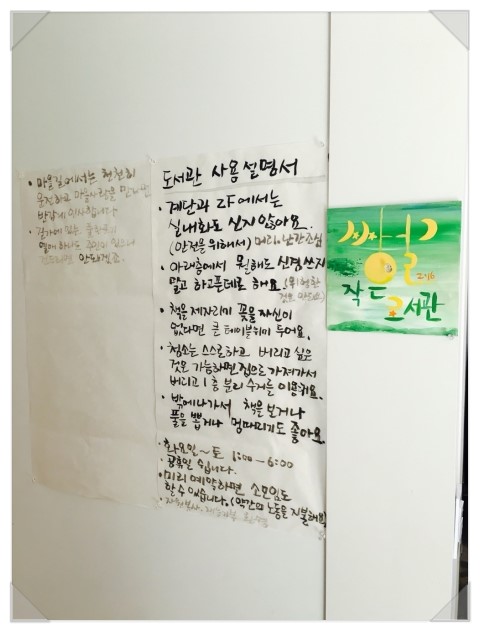 • 마을길에서는 천천히
운전하고 마을사람을 만나면
반갑게 인사합니다
• 길가에 있는
열매 하나도 주인이 있으니
안되겠죠.
도서관 사용설명서
• 계단과 2F에서는
실내화도 신지 않아요.
(안전을 위해서) 머리, 난간조심
• 아래층에서 뭘해도 신경쓰지
말고 하고픈데로 해요. (위험한
것은 안돼요)
• 책을 제자리에 꽂을 자신이
없다면 큰 테이블위에 두어요.
• 청소는 스스로하고 버리고 싶은
것은 가능하면 집으로 가져가서
버리고 1층 분리수거를 이용해요.
• 밖에나가서 책을 보거나
풀을 뽑거나 멍때리기도 좋아요
• 화요일~토 1:00-6:00
• 공휴일 쉽니다.
• 미리 예약하면 소모임도
할 수 있습니다. (약간의 노동을 지불해요)
2016
작은
도서관